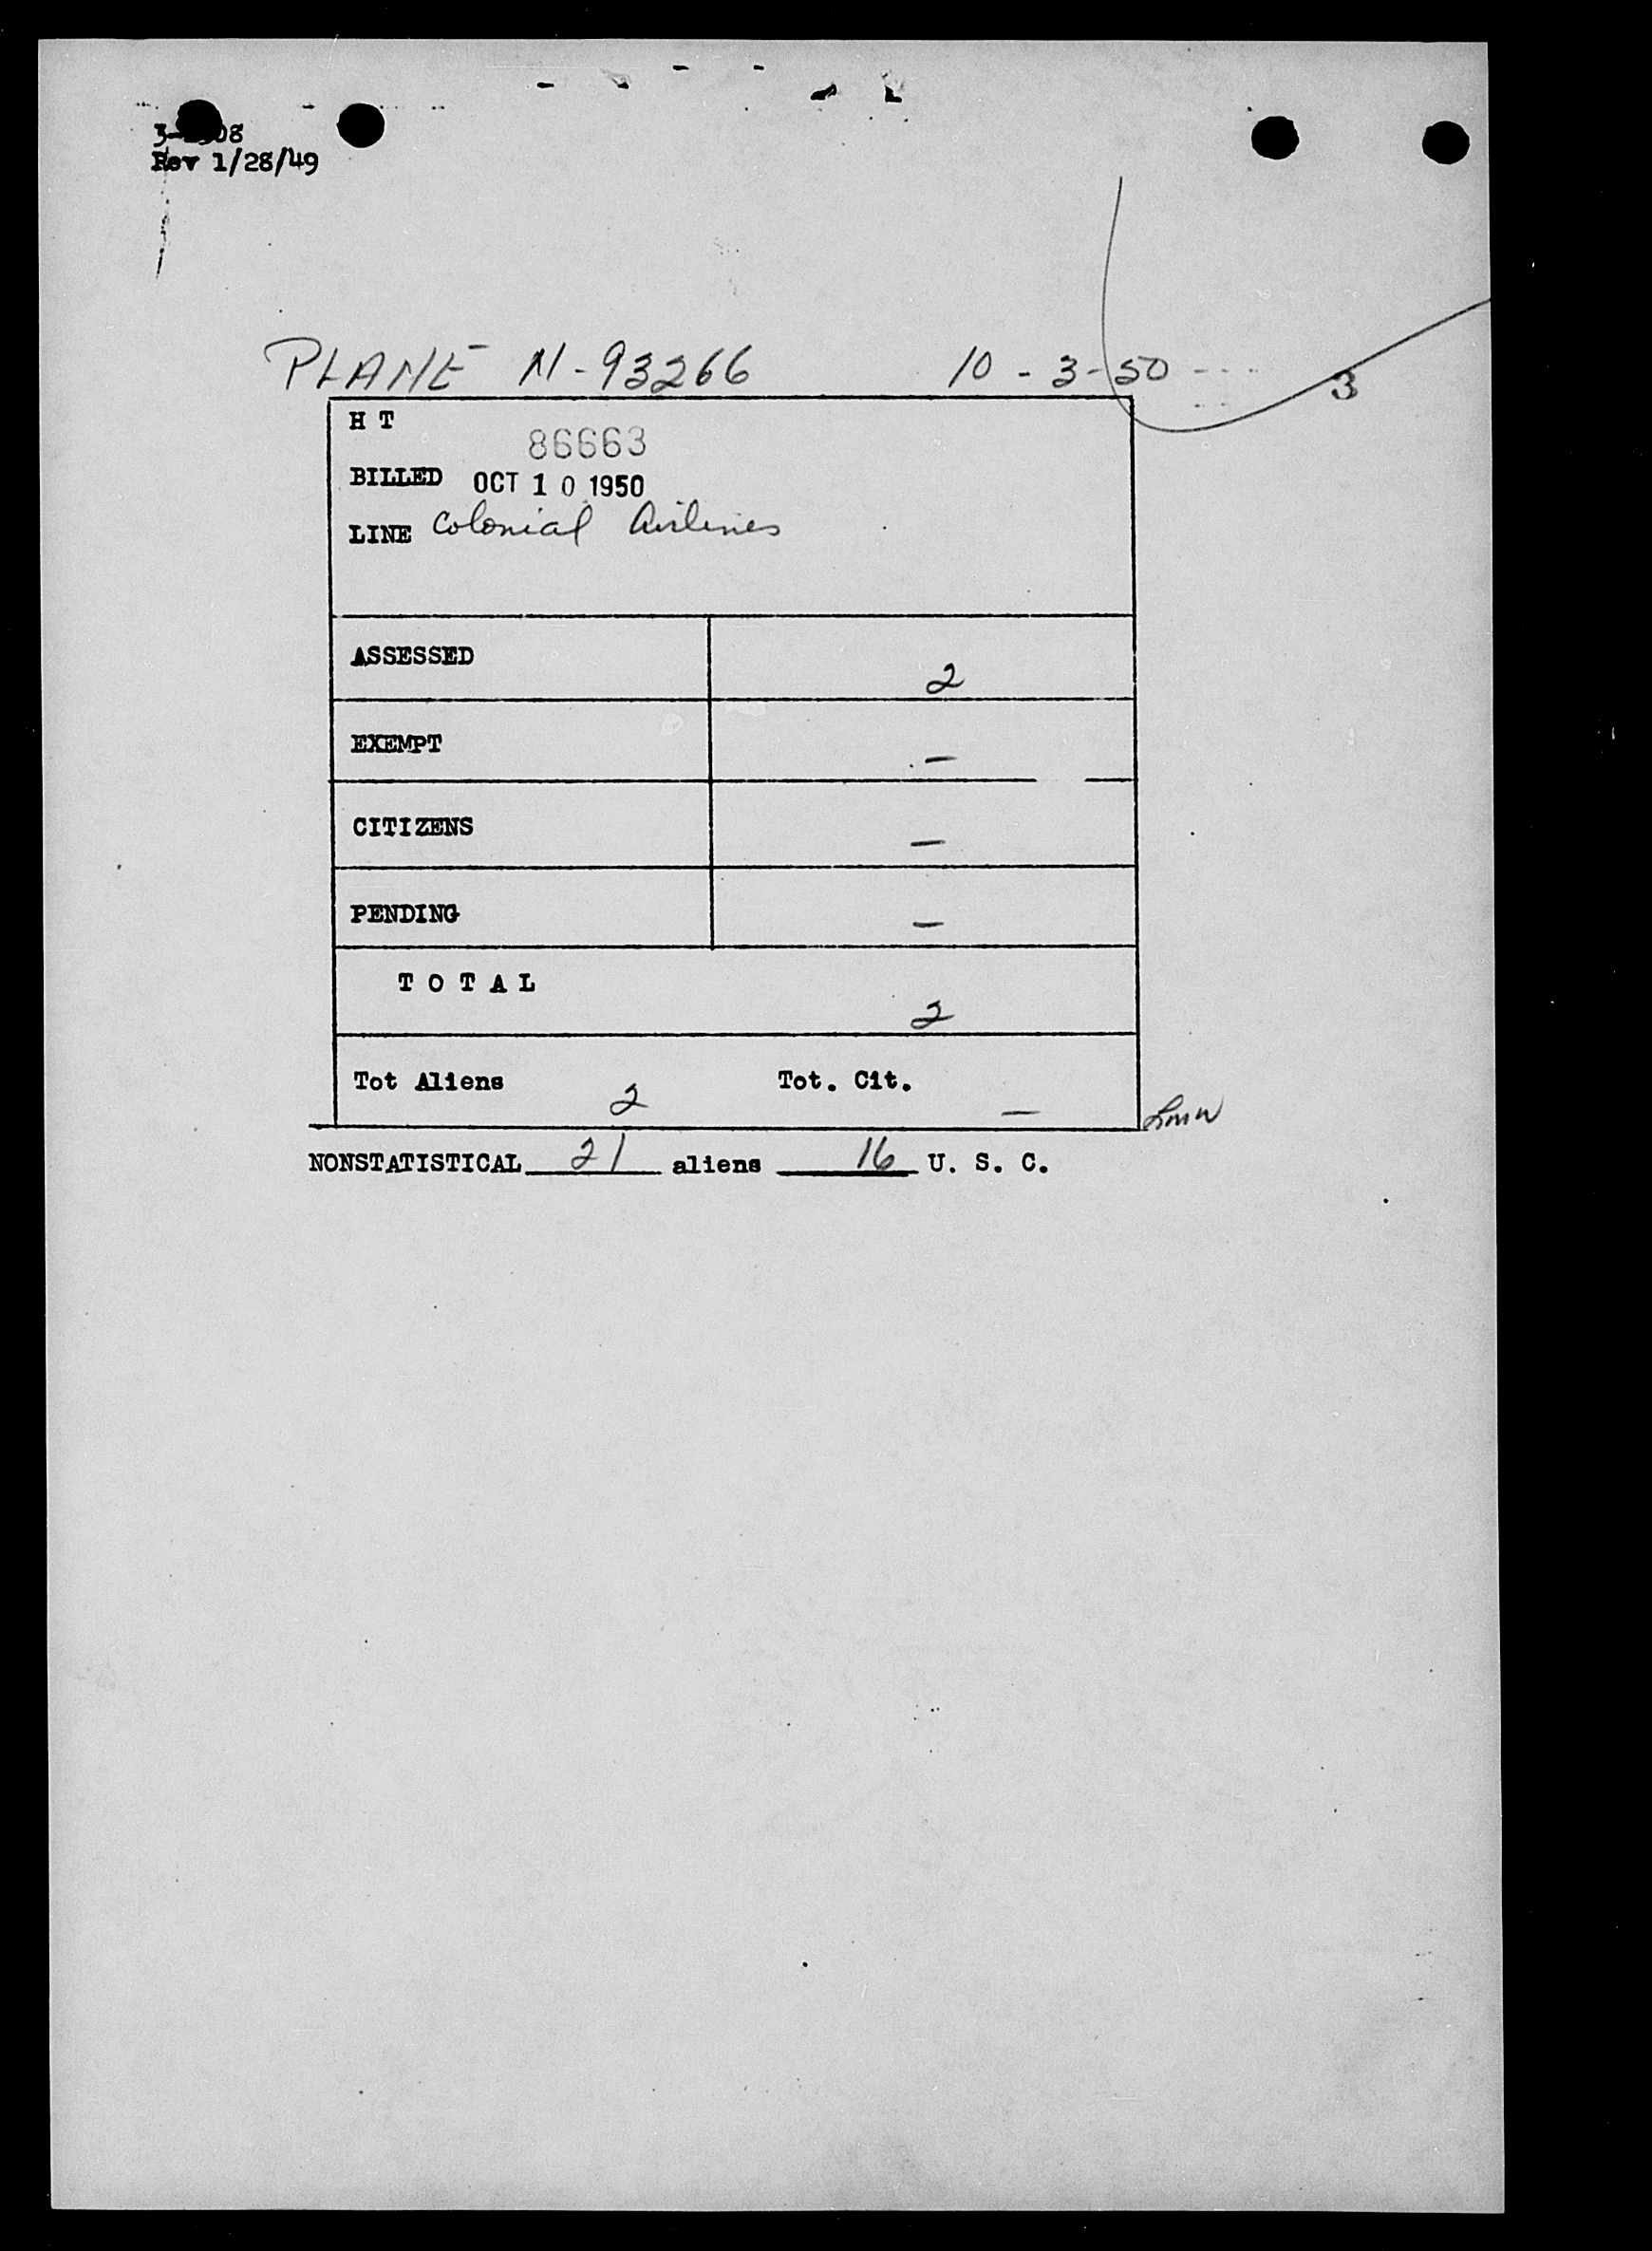 Rev 1/28/49
PLANE N-93266 10-3-50
3
H T
86663
BILLED OCT 10 1950
LINE Colonial Airlines
ASSESSED 2
EXEMPT —
CITIZENS —
PENDING —
TOTAL 2
Tot Aliens 2 Tot. Cit. —
NONSTATISTICAL 21 aliens 16 U. S. C.